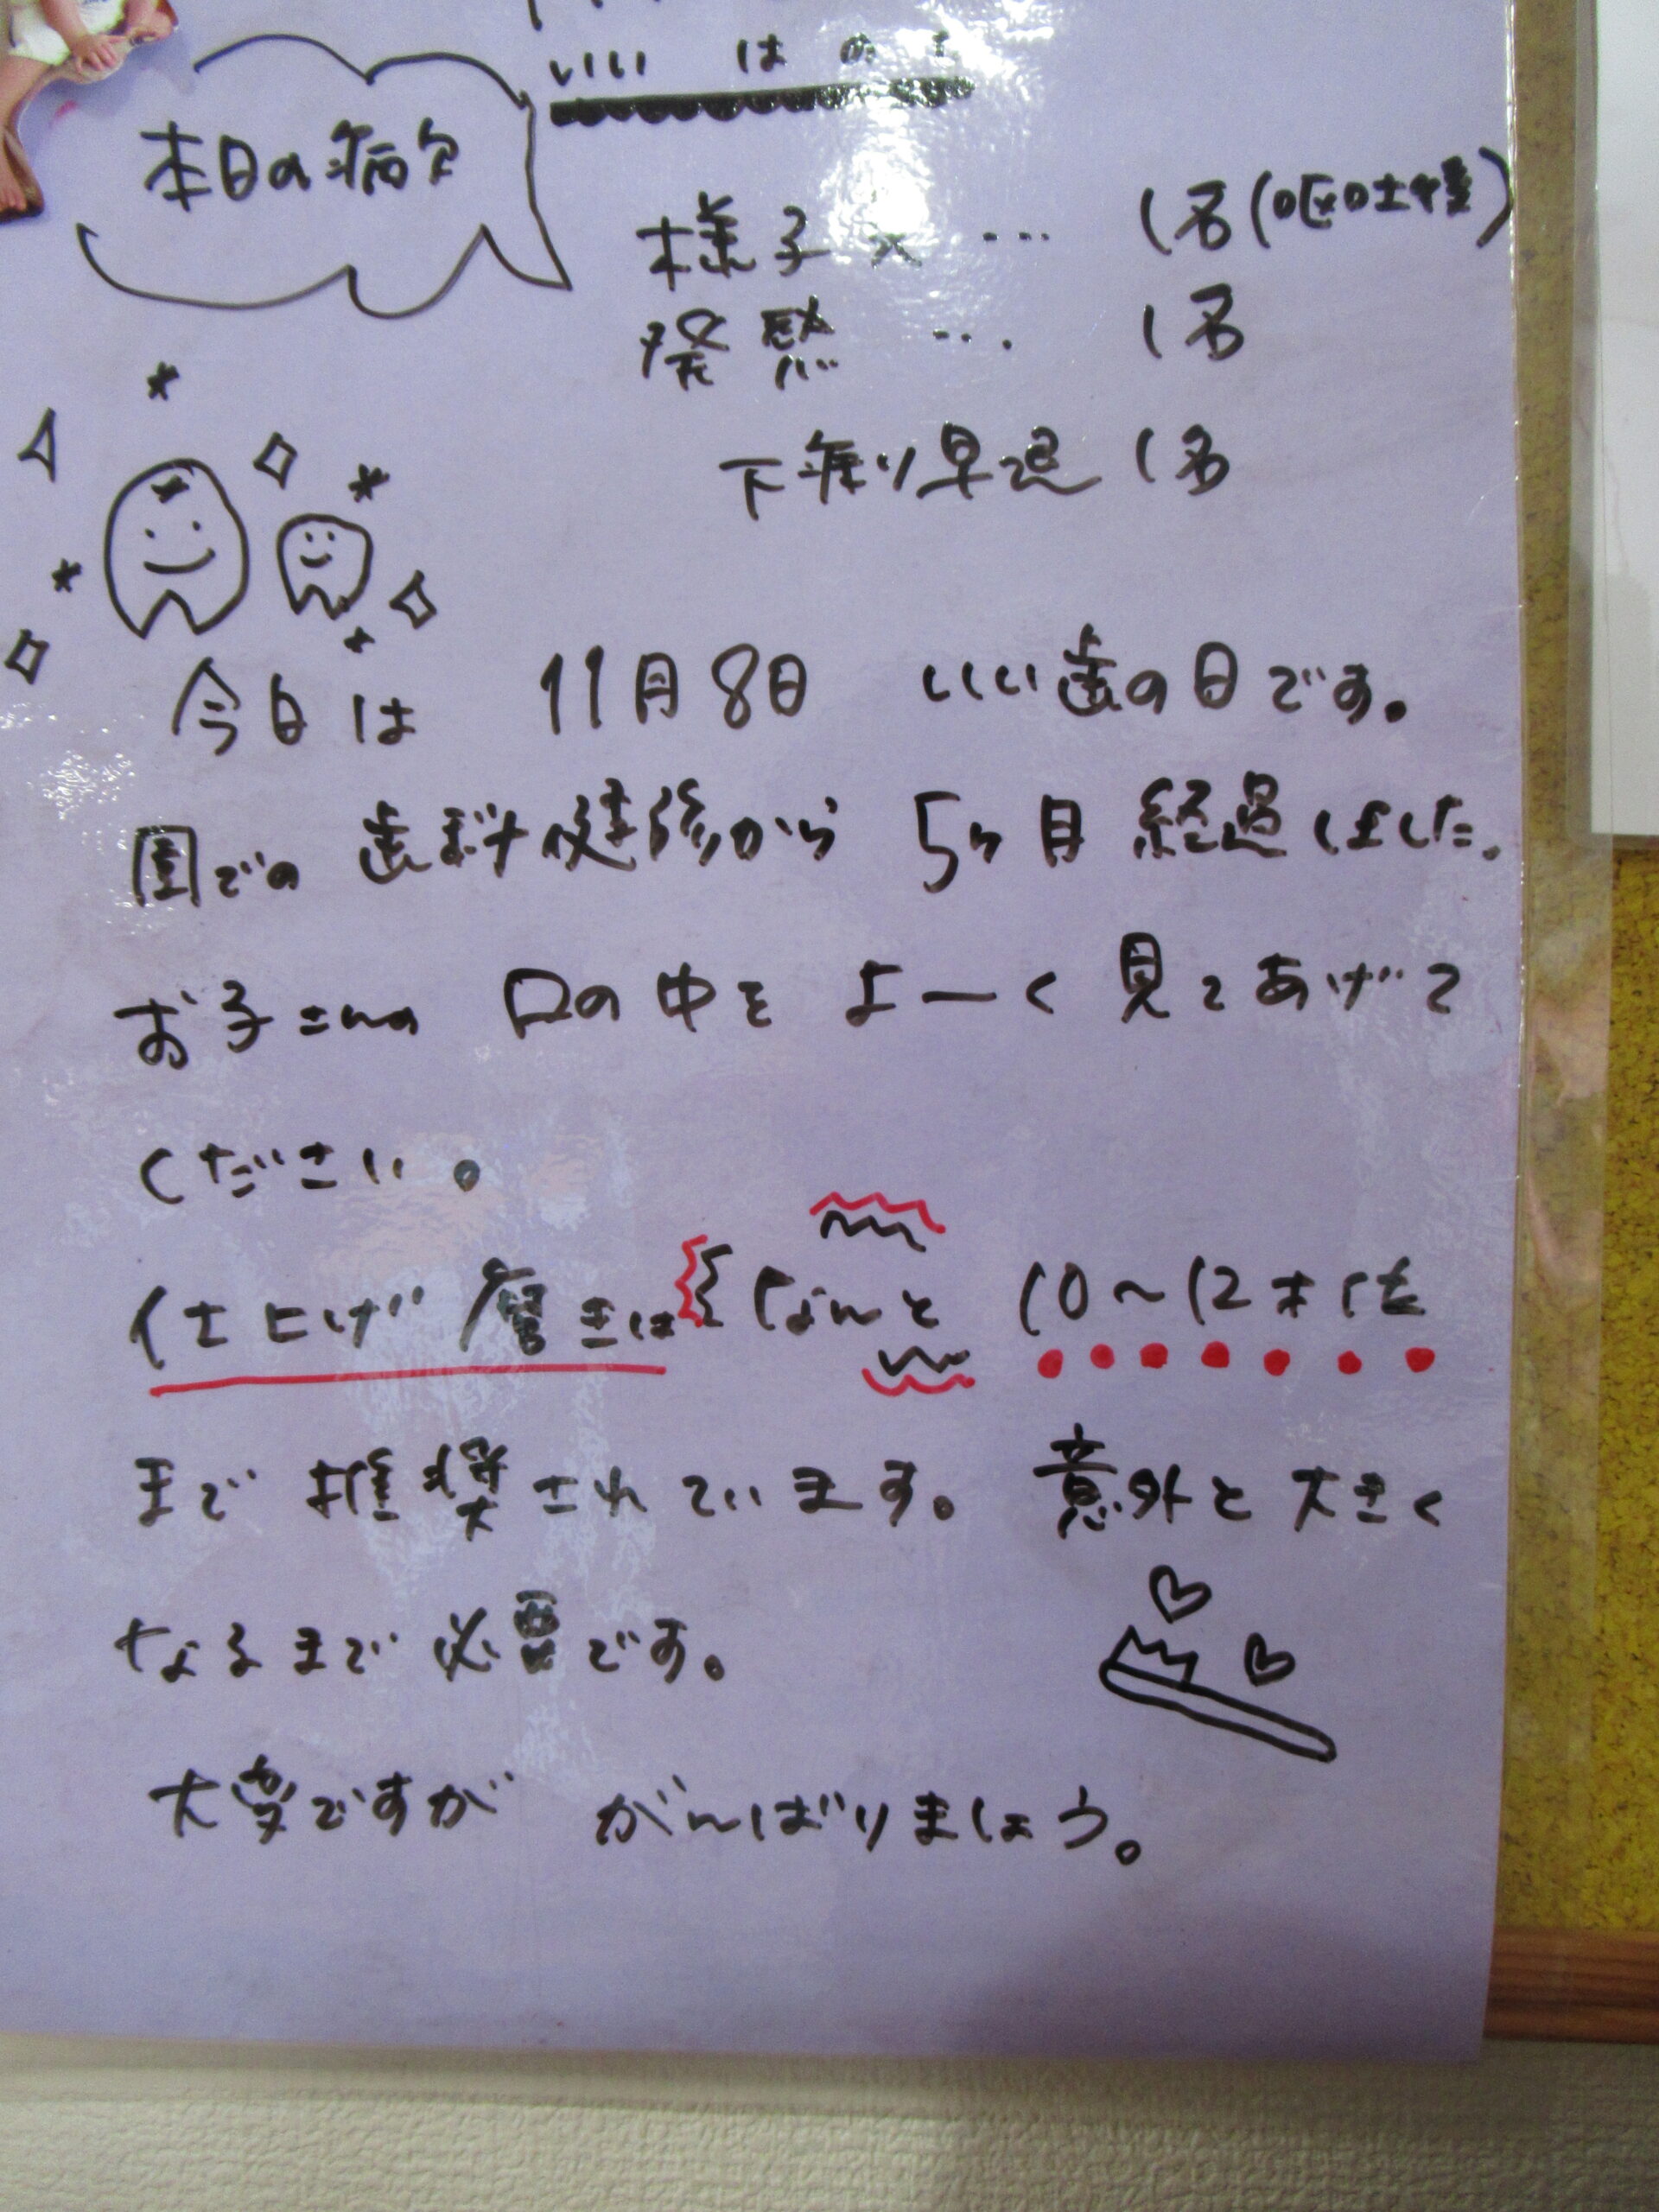 いい は の
本日の病欠
様子 × … 1名(嘔吐後)
発熱 … 1名
下痢り早退 1名
今日は 11月8日 いい歯の日です。
園での 歯科健診から 5ヶ月 経過しました。
お子さんの 口の中を よーく 見てあげて
ください。
仕上げ磨きは なんと 10〜12才くらい
まで 推奨されています。 意外と大きく
なるまで必要です。
大変ですが がんばりましょう。